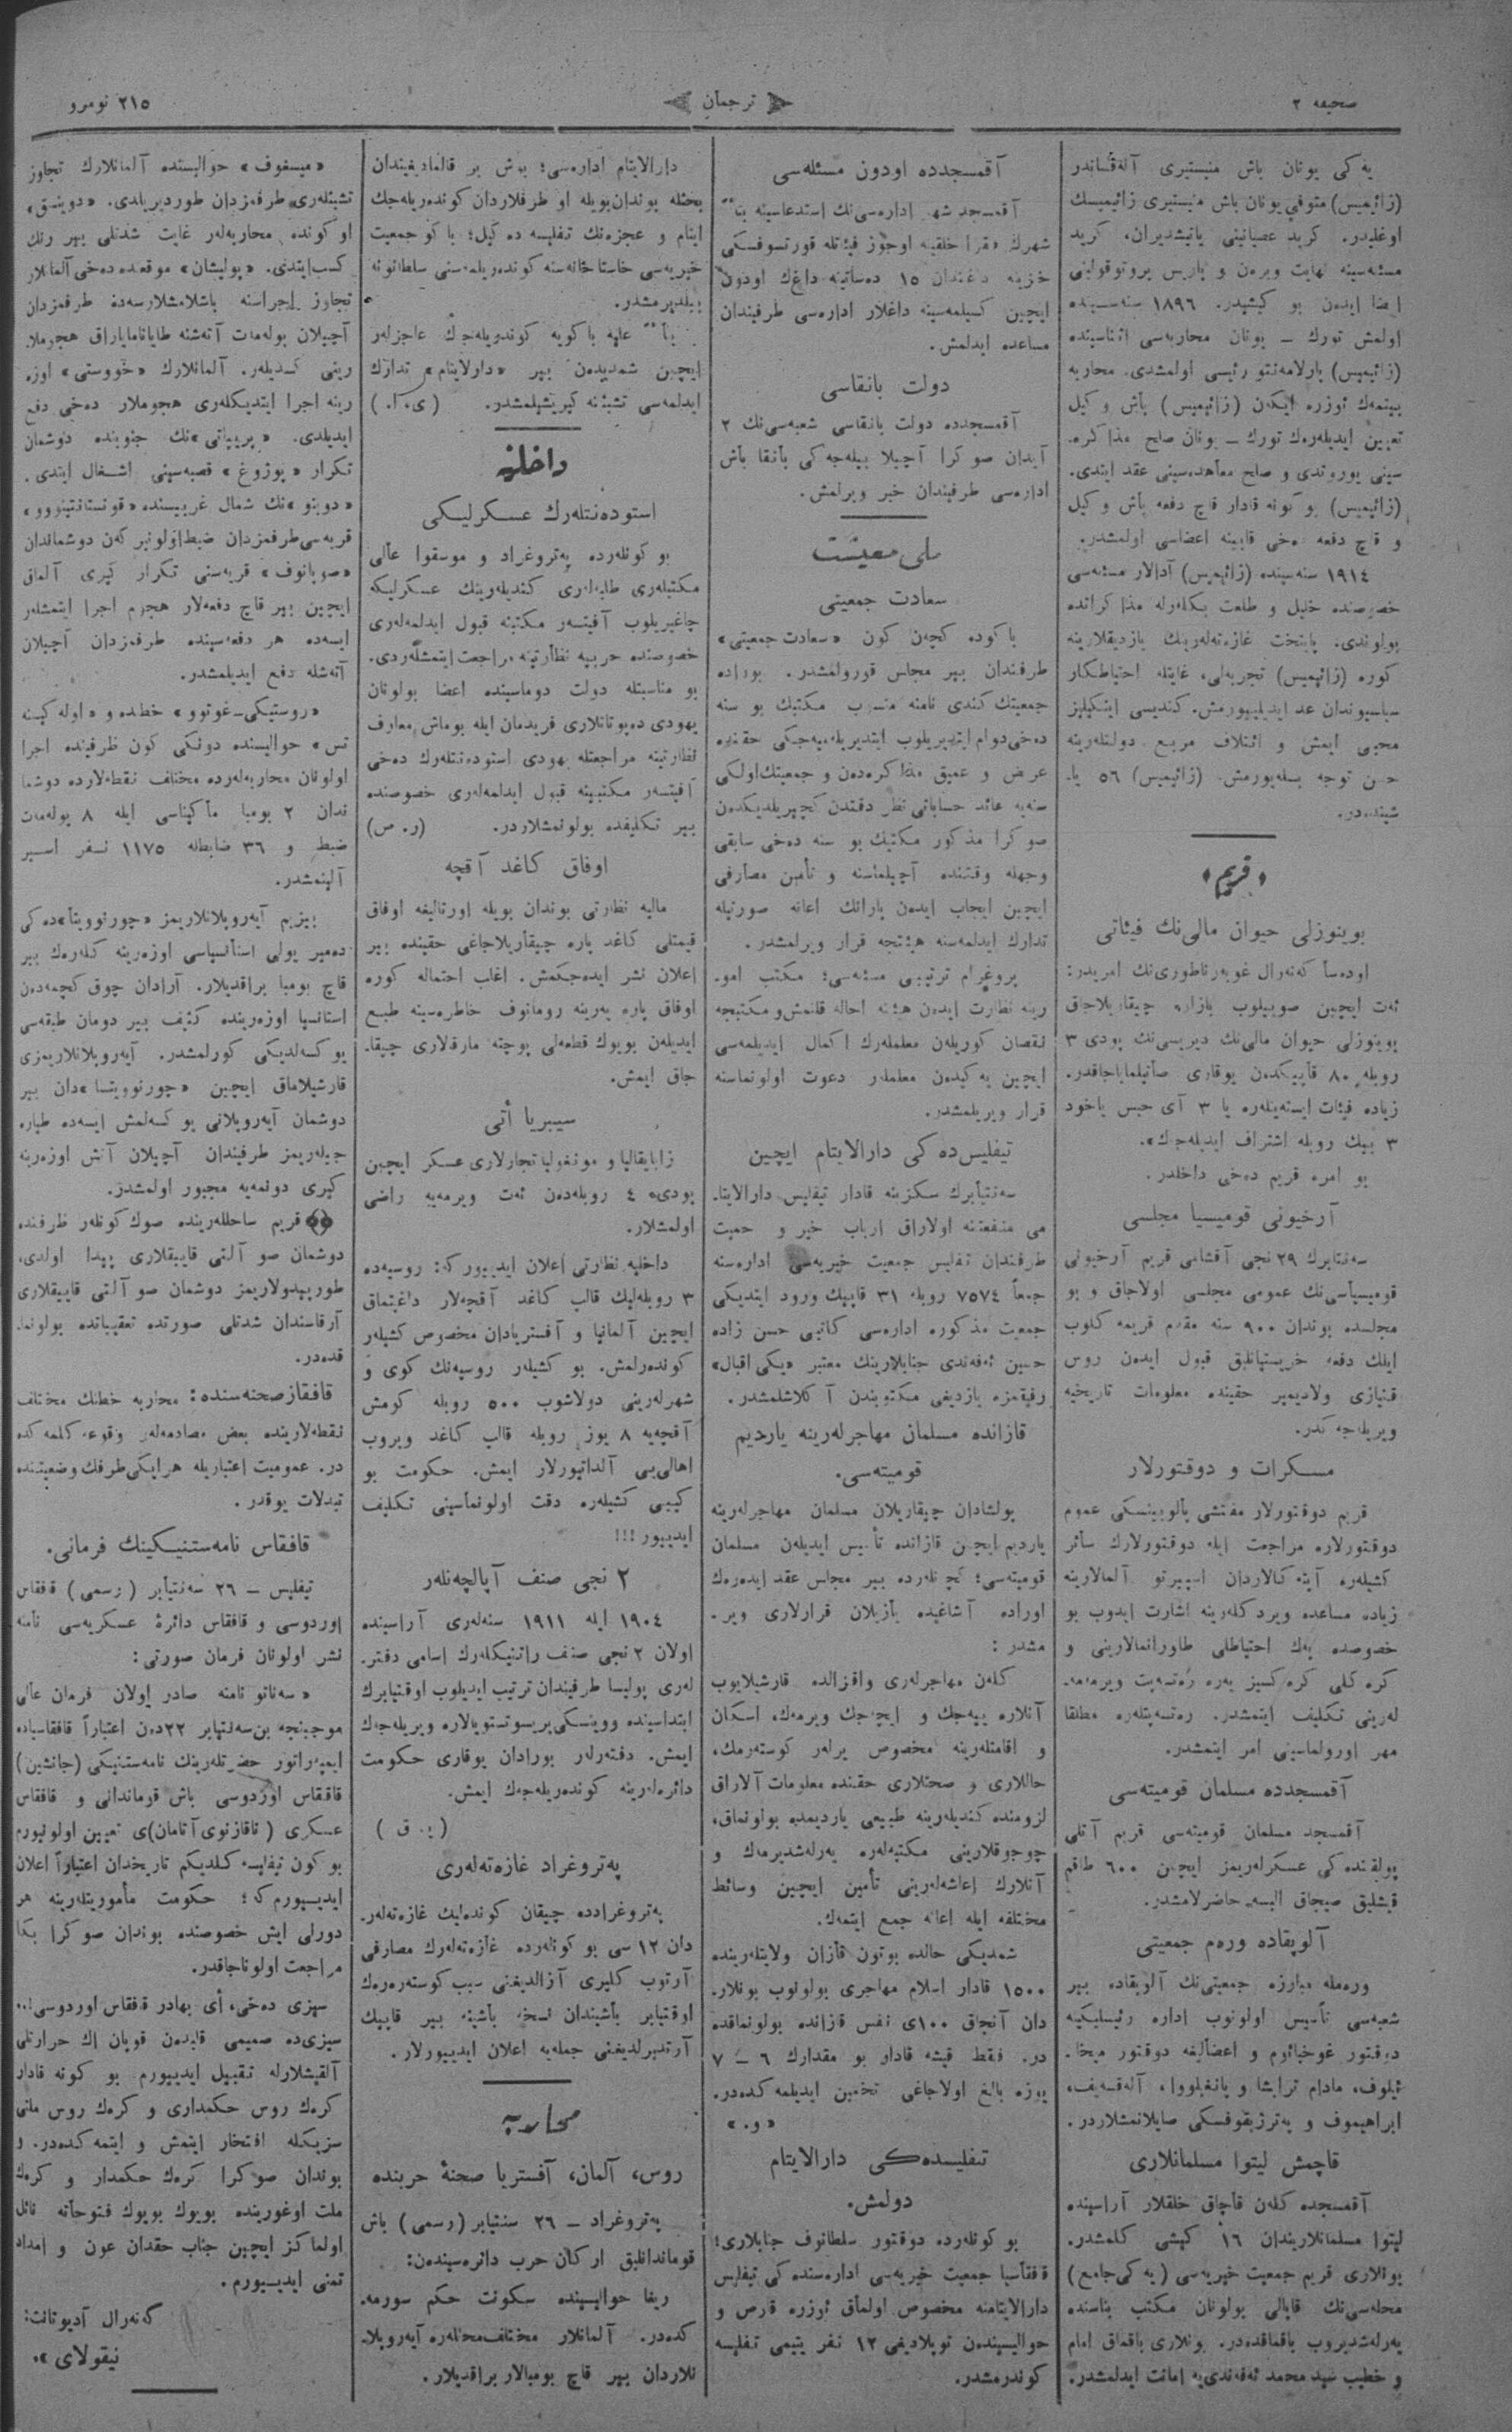 صحیفه ۲
ترجمان
۲۱۵ نومرو
یه‌کی یونان باش منیستیری آله‌قساندر
(زائیمیس) متوفی یونان باش منیستیری زائیمیسك
اوغلیدر. کرید عصیانینی یاتیشدیران، کرید
مسئله‌سینه نهایت ویره‌ن و پاریس پروتوقولینی
امضا ایده‌ن بو کیشیدر. ۱۸۹٦ سنه‌سینده
اولمش تورك ــ یونان محاربه‌سی اثناسینده
(زائیمیس) پارلامه‌نتو رئیسی اولمشدی. محاربه
بیتمه‌ك ئوزره ایکه‌ن (زائیمیس) باش وکیل
تعیین ایدیله‌ره‌ك تورك ــ یونان صلح مذاکره‌
سینی یوروتدی و صلح معاهده‌سینی عقد ایتدی.
(زائیمیس) بو کونه قادار قاچ دفعه باش وکیل
و قاچ دفعه ده‌خی قابینه اعضاسی اولمشدر.
۱۹۱٤ سنه‌سینده (زائیمیس) آدالار مسئله‌سی
خصوصنده خلیل و طلعت بکلرله مذاکراتده
بولوندی. پایتخت غازه‌ته‌له‌رینك یازدیقلارینه
کوره (زائیمیس) تجربه‌لی، غایتله احتیاطکار
سیاسیوندان عد ایدیلییورمش. کندیسی اینکیلیز
محبی ایمش و ائتلاف مربع دولتله‌رینه
حسن توجه بسله‌یورمش. (زائیمیس) ٥٦ یا‌
شینده‌در.
«قریم»
بوینوزلی حیوان مالی‌نك فیئاتی
اوده‌سا که‌نه‌رال غوبه‌رناطوری‌نك امریدر:
ئه‌ت ایچین صوییلوب بازاره چیقاریلاجاق
بوینوزلی حیوان مالی‌نك دیریسی‌نك پودی ۳
روبله ۸۰ قاپیکدن یوقاری صاتیلمایاجاقدر.
زیاده فیئات ایسته‌یلره یا ۳ آی حبس یاخود
۳ بیك روبله اشتراف ایدیله‌جك».
بو امره قریم ده‌خی داخلدر.
آرخیونی قومیسیا مجلسی
سه‌نتابرك ۲۹ نجی آقشامی قریم آرخیونی
قومیسیاسی‌نك عمومی مجلسی اولاجاق و بو
مجلسده بوندان ۹۰۰ سنه مقدم قریمه کلوب
ایلك دفعه خریستیانلیق قبول ایده‌ن روس
قنیازی ولادیمیر حقینده معلومات تاریخیه
ویریله‌جه‌کدر.
مسکرات و دوقتورلار
قریم دوقتورلار مفتشی یالوبینسکی عموم
دوقتورلاره مراجعت ایله دوقتورلارك سائر
کشیله‌ره آپته‌کالاردان اسپیرتو آلمالارینه
زیاده مساعده ویردکله‌رینه اشارت ایدوب بو
خصوصده پك احتیاطلی طاورانمالارینی و
کره‌کلی کره‌کسیز یه‌ره ره‌تسه‌پت ویرمه‌مه‌
له‌رینی تکلیف ایتمشدر. ره‌تسه‌پتله‌ره مطلقا
مهر اورولماسینی امر ایتمشدر.
آقمسجدده مسلمان قومیته‌سی
آقمسجد مسلمان قومیته‌سی قریم آتلی
پولقنده‌کی عسکرله‌ریمز ایچین ٦۰۰ طاقم
قیشلیق صیجاق البسه حاضرلامشدر.
آلوپقاده وره‌م جمعیتی
وره‌مله مبارزه جمعیتی‌نك آلوپقاده بیر
شعبه‌سی تأسیس اولونوب اداره رئیسلیکینه
دوقتور غوخبائوم و اعضالیغه دوقتور میخا‌
ئیلوف، مادام ترایشا و یانغیلووا، آله‌قسه‌یف،
ابراهیموف و پترژیقوفسکی صایلانمشلاردر.
قاچمش لیتوا مسلمانلاری
آقمسجده کلن قاچاق خلقلار آراسینده
لیتوا مسلمانلاریندان ۱٦ کیشی کلمشدر.
بونلاری قریم جمعیت خیریه‌سی (یه‌کی جامع)
محله‌سی‌نك قاپالی بولونان مکتب بناسنده
یه‌رله‌شدیروب باقماقده‌در. بونلاری باقماق امام
و خطیب سید محمد ئه‌فه‌ندی‌یه امانت ایدلمشدر.
آقمسجدده اودون مسئله‌سی
آقمسجد شهر اداره‌سی‌نك استدعاسینه بناً
شهرك فقرا خلقینه اوجوز فیئتله قورتسوفسکی
خزینه داغندان ۱٥ ده‌ساتینه داغك اودون
ایچین کسیلمه‌سینه داغلار اداره‌سی طرفیندان
مساعده ایدلمش.
دولت بانقاسی
آقمسجدده دولت بانقاسی شعبه‌سی‌نك ۲
آیدان صوکرا آچیلا بیله‌جه‌کی بانقا باش
اداره‌سی طرفیندان خبر ویرلمش.
ملی معیشت
سعادت جمعیتی
باکوده کچه‌ن کون «سعادت جمعیتی»
طرفندان بیر مجلس قورولمشدر. بوراده
جمعیتك کندی نامنه منسوب مکتبك بو سنه
ده‌خی دوام ایتدیریلوب ایتدیریلمیه‌جکی حقنده
عریض و عمیق مذاکره‌ده‌ن و جمعیتك اولکی
سنه‌یه عائد حساباتی نظر دقتدن کچیریلدیکدن
صوکرا مذکور مکتبك بو سنه ده‌خی سابقی
وجهله وقتنده آچیلماسنه و تأمین مصارفی
ایچین ایجاب ایده‌ن پارانك اعانه صورتیله
تدارك ایدلمه‌سنه هیئتجه قرار ویرلمشدر.
پروغرام ترتیبی مسئله‌سی؛ مکتب امو‌
رینه نظارت ایده‌ن هیئته احاله قلنمش و مکتبجه
نقصان کوریله‌ن معلمله‌رك اکمال ایدیلمه‌سی
ایچین یه‌کیده‌ن معلملر دعوت اولونماسنه
قرار ویریلمشدر.
تیفلیس‌ده‌کی دارالایتام ایچین
سه‌نتیابرك سکزینه قادار تیفلیس دارالایتا‌
می منفعتنه اولاراق ارباب خیر و حمیت
طرفندان تفلیس جمعیت خیریه‌سی اداره‌سنه
جمعاً ۷٥۷٤ روبله ۳۱ قاپیك ورود ایتدیکی
جمعیت مذکوره اداره‌سی کاتبی حسن زاده
حسین ئه‌فه‌ندی جنابلارینك معتبر «یکی اقبال»
رفیقمزه یازدیغی مکتوبندن آکلاشلمشدر.
قازانده مسلمان مهاجرله‌رینه یاردیم
قومیته‌سی.
پولشادان چیقاریلان مسلمان مهاجرله‌رینه
یاردیم ایچین قازانده تأسیس ایدیله‌ن مسلمان
قومیته‌سی؛ کچنلرده بیر مجلس عقد ایده‌ره‌ك
اوراده آشاغیده یازیلان قرارلاری ویر‌
مشدر:
کله‌ن مهاجرله‌ری واقزالده قارشیلایوب
آنلاره ییه‌جك و ایچه‌جك ویرمه‌ك، اسکان
و اقامتله‌رینه مخصوص یرلر کوسته‌رمك،
حاللاری و صحتلاری حقنده معلومات آلاراق
لزومنده کندیله‌رینه طبیعی یاردیمده بولونماق،
چوجوقلارینی مکتبله‌ره یه‌رله‌شدیرمه‌ك و
آنلارك اعاشه‌له‌رینی تأمین ایچین وسائط
مختلفه ایله اعانه جمع ایتمه‌ك.
شمدیکی حالده بوتون قازان ولایتله‌رینده
۱٥۰۰ قادار اسلام مهاجری بولونوب بونلار‌
دان آنجاق ۱۰۰ی نفس قازانده بولونماقده
در. فقط قیشه قادار بو مقدارك ٦ ــ ۷
یوزه بالغ اولاجاغی تخمین ایدیلمه‌کده‌در.
«و.»
تفلیسده‌کی دارالایتام
دولمش.
بو کونله‌رده دوقتور سلطانوف جنابلاری؛
قافقاسیا جمعیت خیریه‌سی اداره‌سنده‌کی تیفلیس
دارالایتامنه مخصوص اولماق ئوزره قارص و
حوالیسیندن توپلادیغی ۱۲ نفر یتیمی تفلیسه
کوندرمشدر.
دارالایتام اداره‌سی؛ بوش یر قالمادیغیندان
بحثله بوندان بویله او طرفلاردان کونده‌ریله‌جك
ایتام و عجزه‌نك تفلیسه ده‌کیل؛ باکو جمعیت
خیریه‌سی خاستاخانه‌سنه کونده‌ریلمه‌سنی سلطانوفه
بیلدیرمشدر.
بناً علیه باکویه کوندریله‌جك عاجزلر
ایچین شمدیدن بیر «دارلایتام» تدارك
ایدلمه‌سی تشبثنه کیریشیلمشدر. (ی. ا.)
داخلیه
استوده‌نتله‌رك عسکرلیکی
بو کونله‌رده په‌تروغراد و موسقوا عالی
مکتبله‌ری طلبه‌له‌ری کندیله‌رینك عسکرلیکه
چاغیریلوب آفیتسه‌ر مکتبنه قبول ایدلمه‌له‌ری
خصوصنده حربیه نظارتینه مراجعت ایتمشله‌ردی.
بو مناسبتله دولت دوماسینده اعضا بولونان
یهودی ده‌پوتاتلاری فریدمان ایله بوماش معارف
نظارتینه مراجعتله یهودی استوده‌نتله‌رك ده‌خی
آفیتسه‌ر مکتبینه قبول ایدلمه‌له‌ری خصوصنده
بیر تکلیفده بولونمشلاردر. (ر. ص)
اوفاق کاغد آقچه
مالیه نظارتی بوندان بویله اورتالیغه اوفاق
قیمتلی کاغد پاره چیقاریلاجاغی حقینده بیر
اعلان نشر ایده‌جکمش. اغلب احتماله کوره
اوفاق پاره یه‌رینه رومانوف خاطره‌سینه طبع
ایدیله‌ن بویوك قطعه‌لی پوچته مارقالاری چیقا‌
جاق ایمش.
سیبریا أتی
زابایقالیا و مونغولیا تجارلاری عسکر ایچین
پودی ٤ روبله‌ده‌ن ئه‌ت ویرمه‌یه راضی
اولمشلار.
داخلیه نظارتی اعلان ایدییور که: روسیه‌ده
۳ روبله‌لیك قالب کاغد آقچه‌لار داغیتماق
ایچین آلمانیا و آفستریادان مخصوص کشیلر
کونده‌رلمش. بو کشیلر روسیه‌نك کوی و
شهرله‌رینی دولاشوب ٥۰۰ روبله کومش
آقچه‌یه ۸ یوز روبله قالب کاغد ویروب
اهالی‌یی آلداتیورلار ایمش. حکومت بو
کیبی کشیله‌ره دقت اولونماسینی تکلیف
ایدییور!!!
۲ نجی صنف آپالچه‌نلر
۱۹۰٤ ایله ۱۹۱۱ سنه‌له‌ری آراسینده
اولان ۲ نجی صنف راتنیکله‌رك اسامی دفتر‌
له‌ری پولیسا طرفیندان ترتیب ایدیلوب اوقتیابرك
ابتداسینده ووینسکی پریسوتستویالاره ویریله‌جك
ایمش. دفته‌رلر بورادان یوقاری حکومت
دائره‌له‌رینه کونده‌ریله‌جك ایمش.
(ی. ق)
په‌تروغراد غازه‌ته‌له‌ری
په‌تروغرادده چیقان کونده‌لیك غازه‌ته‌لر‌
دان ۱۲ سی بو کونله‌رده غازه‌ته‌له‌رك مصارفی
آرتوب کلیری آزالدیغنی سبب کوسته‌ره‌ره‌ك
اوقتیابر باشیندان نسخه باشینه بیر قاپیك
آرتدیرلدیغنی جمله‌یه اعلان ایدییورلار.
محاربه
روس، آلمان، آفستریا صحنهٔ حربنده
په‌تروغراد ــ ۲٦ سنتیابر (رسمی) باش
قوماندانلیق ارکان حرب دائره‌سینده‌ن:
ریغا حوالیسینده سکونت حکم سورمه‌
کده‌در. آلمانلار مختلف محللره آیه‌روپلا‌
نلاردان بیر قاچ بومبالار براقدیلار.
«میسغوف» حوالیسنده آلمانلارك تجاوز
تشبثله‌ری طرفمزدان طوردیریلدی. «دوینسق»
اوکونده محاربه‌لر غایت شدتلی بیر رنك
کسب ایتدی. «پولیشان» موقعده ده‌خی آلمانلار
تجاوز اجراسنه باشلامشلارسه‌ده طرفمزدان
آچیلان پولمه‌ت آته‌شنه طایانامایاراق هجوملا‌
رینی کسدیلر. آلمانلارك «خووستی» اوزه‌
رینه اجرا ایتدیکله‌ری هجوملار ده‌خی دفع
ایدیلدی. «پریپیاتی»نك جنوبنده دوشمان
تکرار «پوزوغ» قصبه‌سینی اشغال ایتدی.
«دوبنو»نك شمال غربیسنده «قونستانتینوو»
قریه‌سی طرفمزدان ضبط اولونیر که‌ن دوشماندان
«صوپانوف» قریه‌سنی تکرار کیری آلماق
ایچین بیر قاچ دفعه‌لار هجوم اجرا ایتمشلر
ایسه‌ده هر دفعه‌سینده طرفمزدان آچیلان
آته‌شله دفع ایدیلمشدر.
«روستیکی ــ غوتوو» خطده و «اوله کیسنه
تس» حوالیسنده دونکی کون ظرفینده اجرا
اولونان محاربه‌له‌رده مختلف نقطه‌لارده دوشما
ندان ۲ بومبا ماکیناسی ایله ۸ پوله‌مه‌ت
ضبط و ۳٦ ضابطله ۱۱۷٥ نفر اسیر
آلینمشدر.
بیزیم آیه‌روپلانلاریمز «چورنوویتا»ده‌کی
ده‌میر یولی استانسیاسی اوزه‌رینه کله‌ره‌ك بیر
قاچ بومبا براقدیلار. آرادان چوق کچمه‌ده‌ن
استانسیا اوزه‌رینده کثیف بیر دومان طبقه‌سی
یوکسه‌لدیکی کورلمشدر. آیه‌روپلانلاریمزی
قارشیلاماق ایچین «چورنوویتسا»دان بیر
دوشمان آیه‌روپلانی یوکسه‌لمش ایسه‌ده طیاره
جیله‌ریمز طرفیندان آچیلان آتش اوزه‌رینه
کیری دونمه‌یه مجبور اولمشدر.
قریم ساحللرینده صوك کونلر ظرفنده
دوشمان صو آلتی قاییقلاری پیدا اولدی.
طورپیدولاریمز دوشمان صو آلتی قاییقلاری
آرقاسندان شدتلی صورتده تعقیباتده بولونما‌
قده‌در.
قافقاز صحنه‌سنده: محاربه خطنك مختلف
نقطه‌لارینده بعض مصادمه‌لر وقوعه کلمه‌کده
در. عمومیت اعتباریله هر ایکی طرفك وضعیتنده
تبدلات یوقدر.
قافقاس نامه‌ستنیکینك فرمانی.
تیفلیس ــ ۲٦ سه‌نتیابر (رسمی) قافقاس
اوردوسی و قافقاس دائرهٔ عسکریه‌سی نامنه
نشر اولونان فرمان صورتی:
«سه‌ناتو نامنه صادر اولان فرمان عالی
موجبنجه بن سه‌نتیابر ۲۲ده‌ن اعتباراً قافقاسیاده
ایمپه‌راتور حضرتله‌رینك نامه‌ستنیکی (جانشین)
قافقاس اوردوسی باش قوماندانی و قافقاس
عسکری (ناقازنوی آتامان)ی تعیین اولونیورم
بو کون تیفلیسه کلدیکم تاریخدان اعتباراً اعلان
ایدییورم که؛ حکومت مأموریتله‌رینه هر
دورلی ایش خصوصنده بوندان صوکرا بکا
مراجعت اولوناجاقدر.
سیزی ده‌خی، أی بهادر قافقاس اوردوسی!..
سیزی‌ده صمیمی قلبده‌ن قوپان اك حرارتلی
آلقیشلارله تقبیل ایدییورم. بو کونه قادار
کره‌ك روس حکمداری و کره‌ك روس ملتی
سزیکله افتخار ایتمش و ایتمه‌کده‌در. و
بوندان صوکرا کره‌ك حکمدار و کره‌ك
ملت اوغورینده بویوك بویوك فتوحاته نائل
اولماکز ایچین جناب حقدان عون و امداد
تمنی ایدییورم.
که‌نه‌رال آدیوتانت:
نیقولای».